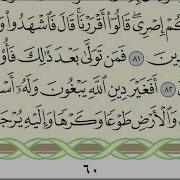 كُمْ إِصْرِى ۖ قَالُوٓا۟ أَقْرَرْنَا ۚ قَالَ فَٱشْهَدُوا۟ وَ
دِينَ ٨١ فَمَن تَوَلَّىٰ بَعْدَ ذَٰلِكَ فَأُو
٨٢ أَفَغَيْرَ دِينِ ٱللَّهِ يَبْغُونَ وَلَهُۥٓ أَسْ
وَٱلْأَرْضِ طَوْعًا وَكَرْهًا وَإِلَيْهِ يُرْجَ
٦٠